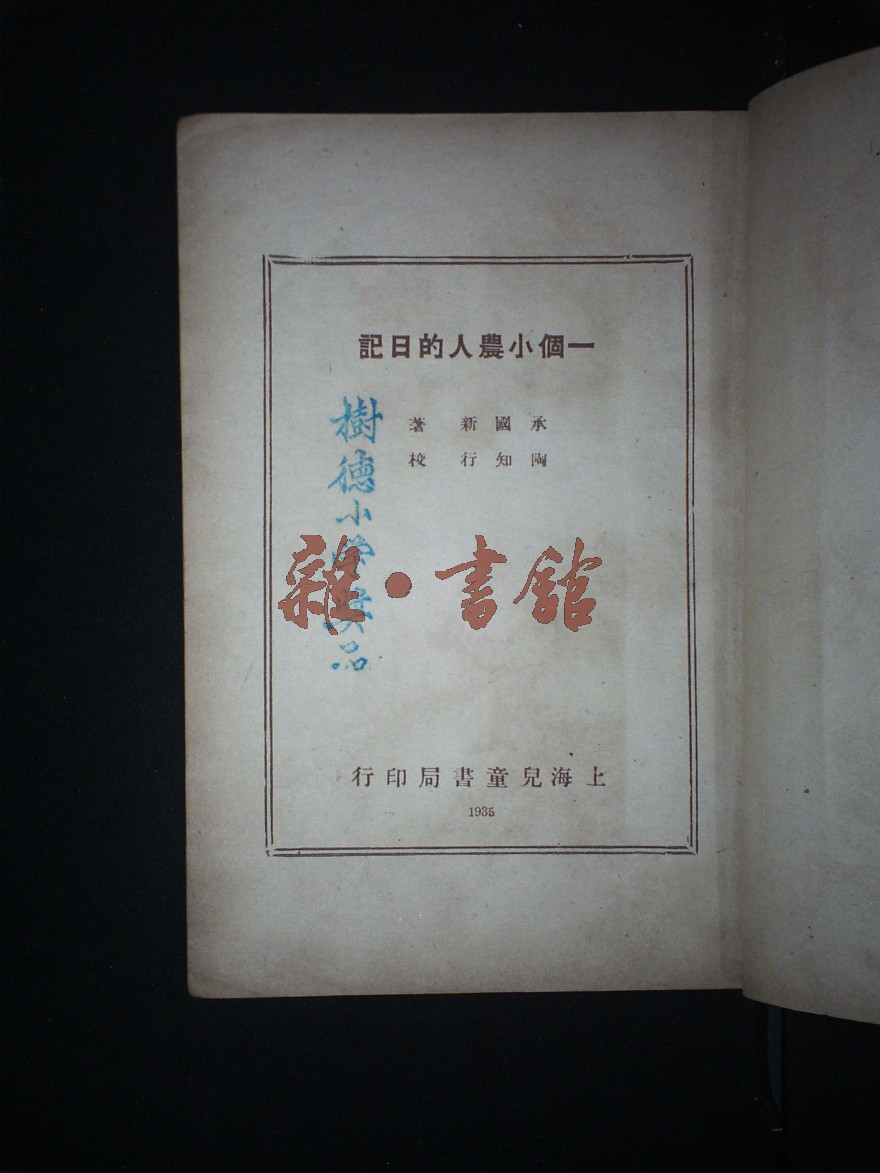 一個小農人的日記
承國新 著
陶知行 校
樹德小學獎品
雜·書館
上海兒童書局印行
1935